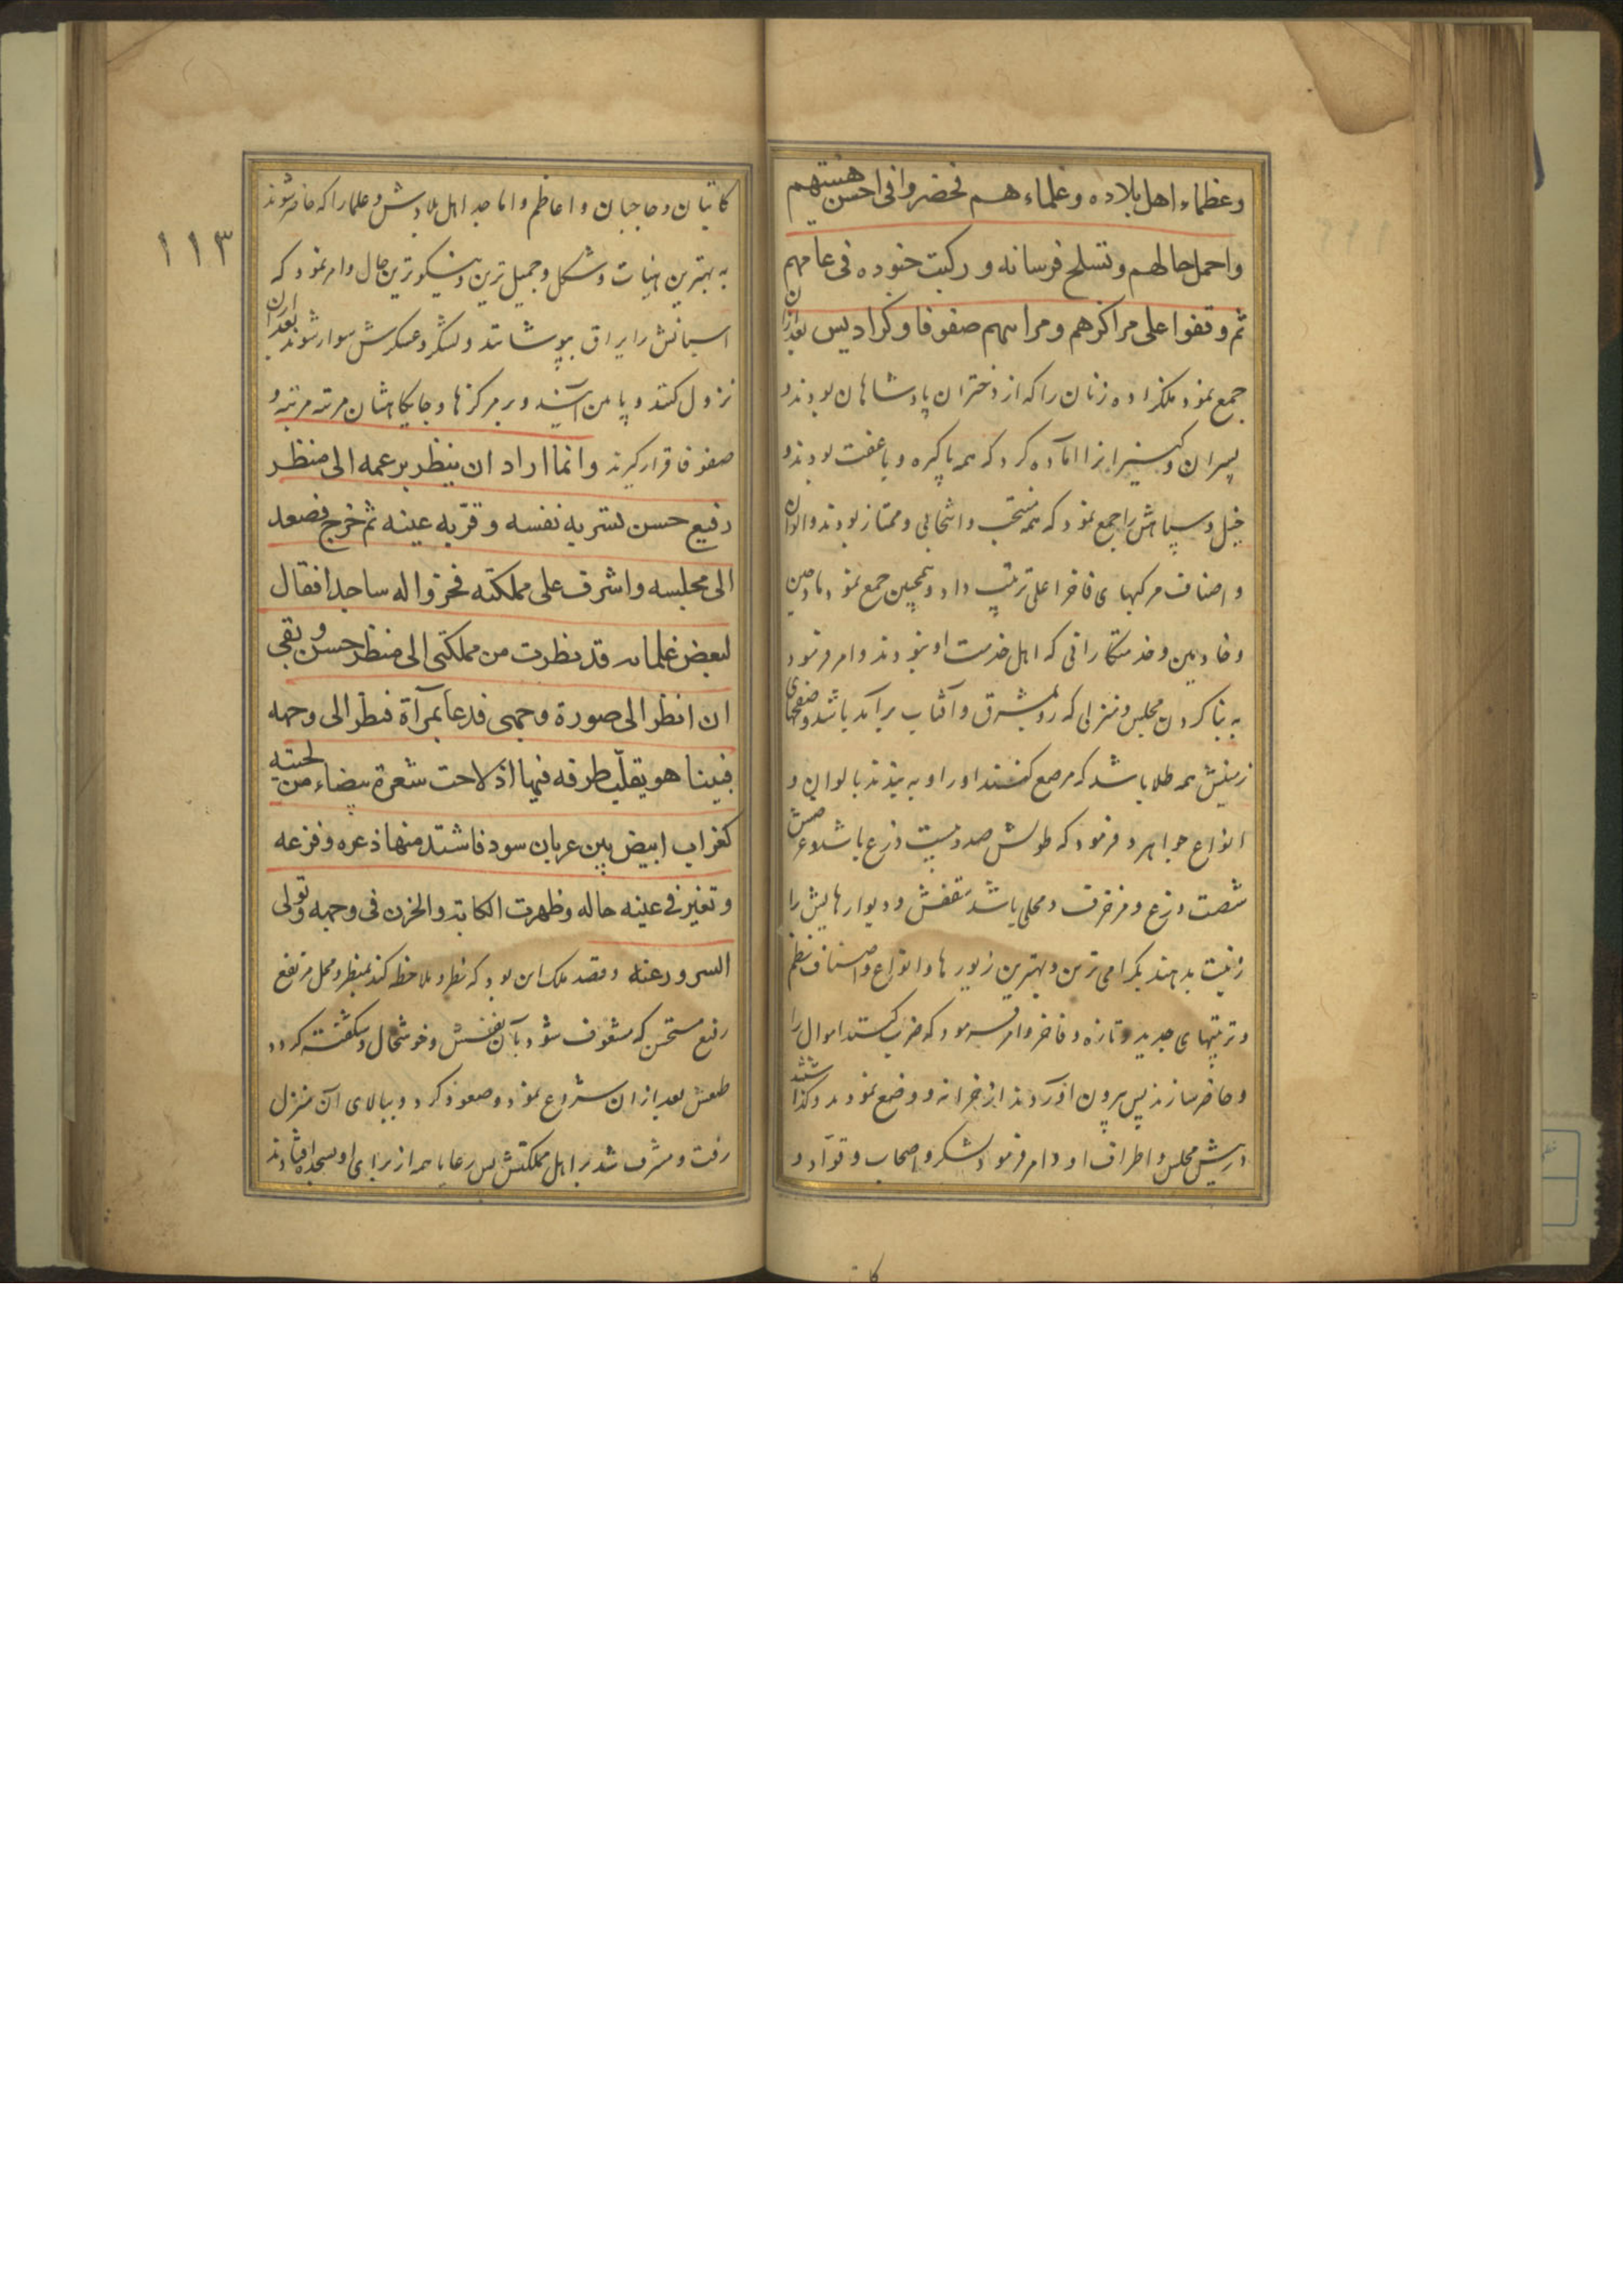 وعظماء اهل بلاده وعلماء هم فحضروا فی احسن هیئتهم
واجمل حالهم وتسلح فرسانه ورکبت جنوده فی عامهم
ثم وقفوا علی مراکزهم ومراتبهم صفوفا وکرادیس بعد ازان
جمع نمود ملکزاده زنان را که از دختران پادشاهان بودند و
پسران و کنیزانرا آماده کرد که همه پاکیزه و با عفت بودند و
خیل و سپاهش را جمع نمود که همه منتخب و انتخابی و ممتاز بودند و الوان
و اصناف مرکبهای فاخر اعلی ترتیب داد و همچنین جمع نمود مادحین
و خادمین و خدمتکارانی که اهل خدمت او بودند و امر فرمود
به بنا کردن مجلس و منزلی که رو بمشرق و آفتاب برآمد باشد و صفحهای
زمینش همه طلا باشد که مرصع کنند او را و به بندند بالوان و
انواع جواهر و فرمود که طولش صد و بیست ذرع باشد و عرضش
شصت ذرع و مزخرف و محلی باشد سقفش و دیوارهایش را
زینت بدهند بگرامی ترین و بهترین زیورها و انواع و اصناف نظم
و ترتیبهای جدید و تازه و فاخر و امر فرمود که خزب کنند اموال را
و حاضر سازند پس بیرون آوردند از خزانه و وضع نمودند و گذاشتند
در پیش مجلس و اطراف او و امر فرمود لشکر و اصحاب و قوّاد و
کا
١١٣
کاتبان و حاجبان و اعاظم و اماجد اهل بلادش و علما را که حاضر شوند
به بهترین هیئات و شکل و جمیل ترین و نیکوترین حال و امر نمود که
اسبانش را یراق بپوشانند و لشکر و عسکرش سوار شوند بعد ازان
نزول کنند و پایین آیند و بر مرکزها و جایگاهشان مرتبه مرتبه و
صفوفا قرار گیرند وانما اراد ان ینظر برعمه الی منظر
رفیع حسن تسر به نفسه وقرّبه عینه ثم خرج فصعد
الی مجلسه واشرف علی مملکته فخروا له ساجدا فقال
لبعض غلمانه قد نظرت من مملکتی الی منظر حسن و بقی
ان انظر الی صورة وجهی فدعا بمرآة فنظر الی وجهه
فبینا هو یقلّب طرفه فیها اذ لاحت شعرة بیضاء من لحیته
کغراب ابیض بین غربان سود فاشتد منها ذعره وفزعه
وتغیر فی عینه حاله وظهرت الکابة والحزن فی وجهه وتولی
السرور عنه و قصد ملک این بود که نظر و ملاحظه کند بمنظر و محل مرتفع
رفیع مستحسن که مشعوف شود بآن نفسش و خوشحال و شکفته گردد
طبعش بعد ازان شروع نمود و صعود کرد و ببالای آن منزل
رفت و مشرف شد بر اهل مملکتش پس رعایا همه از برای او بسجده افتادند